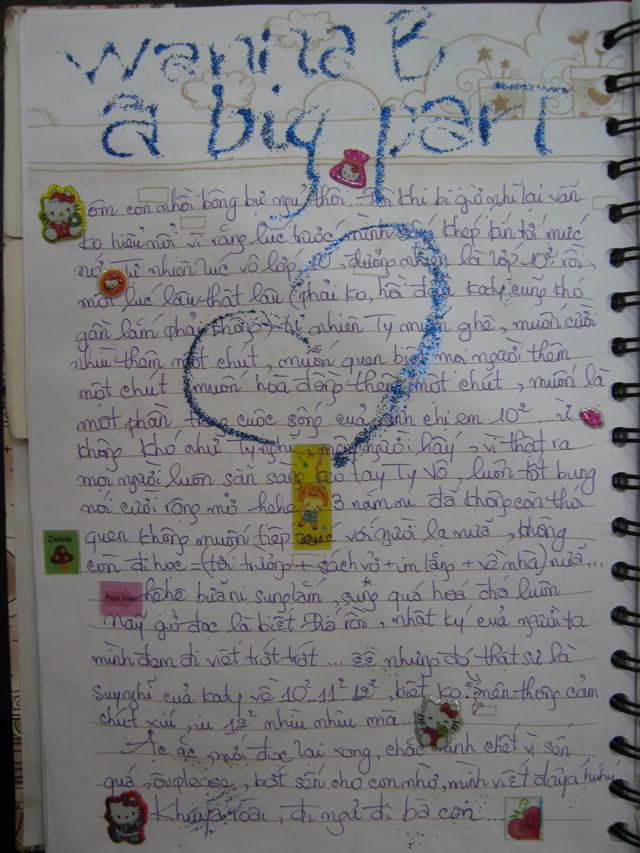 wanna B
a big part
ôm con nhồi bông bự ngủ thôi. Tới khi bi giờ nghĩ lại vẫn
ko hiểu nổi vì rằng lúc trước mình khép kín tới mức
nớ. Tự nhiên lúc vô lớp 10, đương nhiên là lớp 10² rồi,
một lúc lâu thật lâu (phải ko, hồi đầu Katy cũng khó
gần lắm phải không) tự nhiên Ty muốn ghê, muốn cười
nhìu thêm một chút, muốn quen biết mọi người thêm
một chút muốn hòa đồng thêm một chút, muốn là
một phần trong cuộc sống của anh chị em 10² ... vì
không khó như Ty nghĩ, mọi người hấy, vì thật ra
mọi người luôn sẵn sàng kéo tay Ty vô, luôn tốt bụng
nói cười rộng mở hehe 3 năm ni đã không còn thói
quen không muốn tiếp với người lạ nữa, không
Delete
còn đi học = (tới trường + sách vở + im lặng + về nhà) nữa...
Page Down
hôhô bữa ni sung lắm, sung quá hoá đá luôn
nãy giờ đọc là biết đó rồi, nhật ký của người ta
mình đem đi viết trớt trớt ... nhưng đó thật sự là
suy nghĩ của Katy về 10² 11² 12², biết ko ?? nên thông cảm
chút xíu, iu 12² nhìu nhìu mà
Ặc ặc, mới đọc lại xong, chắc mình chết vì sến
quá, ouplease, bớt sến cho con nhờ, mình viết đấy á huhu
Khuya rồi, đi ngủ đi bà con ...